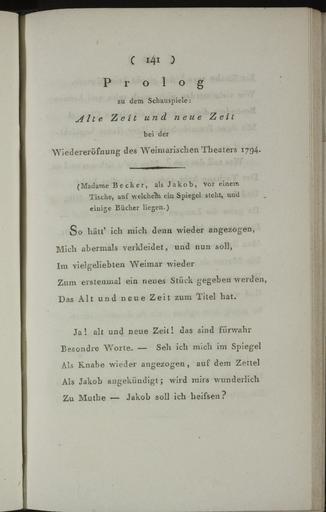 ( 141 )
Prolog
zu dem Schauspiele:
Alte Zeit und neue Zeit
bei der
Wiedereröfnung des Weimarischen Theaters 1794.
(Madame Becker, als Jakob, vor einem
Tische, auf welchem ein Spiegel steht, und
einige Bücher liegen.)
So hätt' ich mich denn wieder angezogen,
Mich abermals verkleidet, und nun soll,
Im vielgeliebten Weimar wieder
Zum erstenmal ein neues Stück gegeben werden,
Das Alt und neue Zeit zum Titel hat.
Ja! alt und neue Zeit! das sind fürwahr
Besondre Worte. — Seh ich mich im Spiegel
Als Knabe wieder angezogen, auf dem Zettel
Als Jakob angekündigt; wird mirs wunderlich
Zu Muthe — Jakob soll ich heifsen?